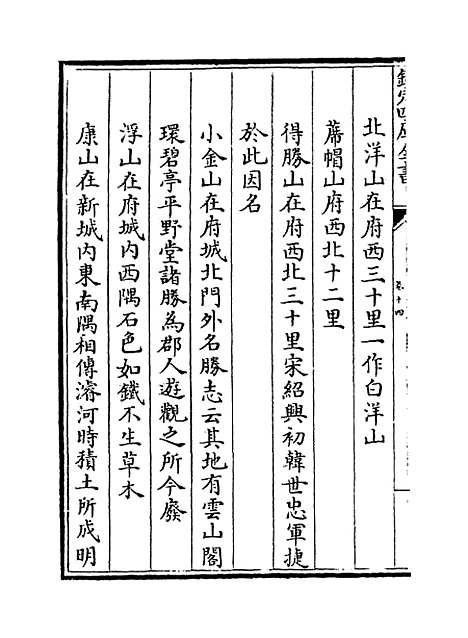 欽定四庫全書
卷十四
北洋山在府西三十里一作白洋山
蓆帽山府西北十二里
得勝山在府西北三十里宋紹興初韓世忠軍捷
於此因名
小金山在府城北門外名勝志云其地有雲山閣
環碧亭平野堂諸勝為郡人遊觀之所今廢
浮山在府城内西隅石色如鐵不生草木
康山在新城内東南隅相傳濬河時積土所成明